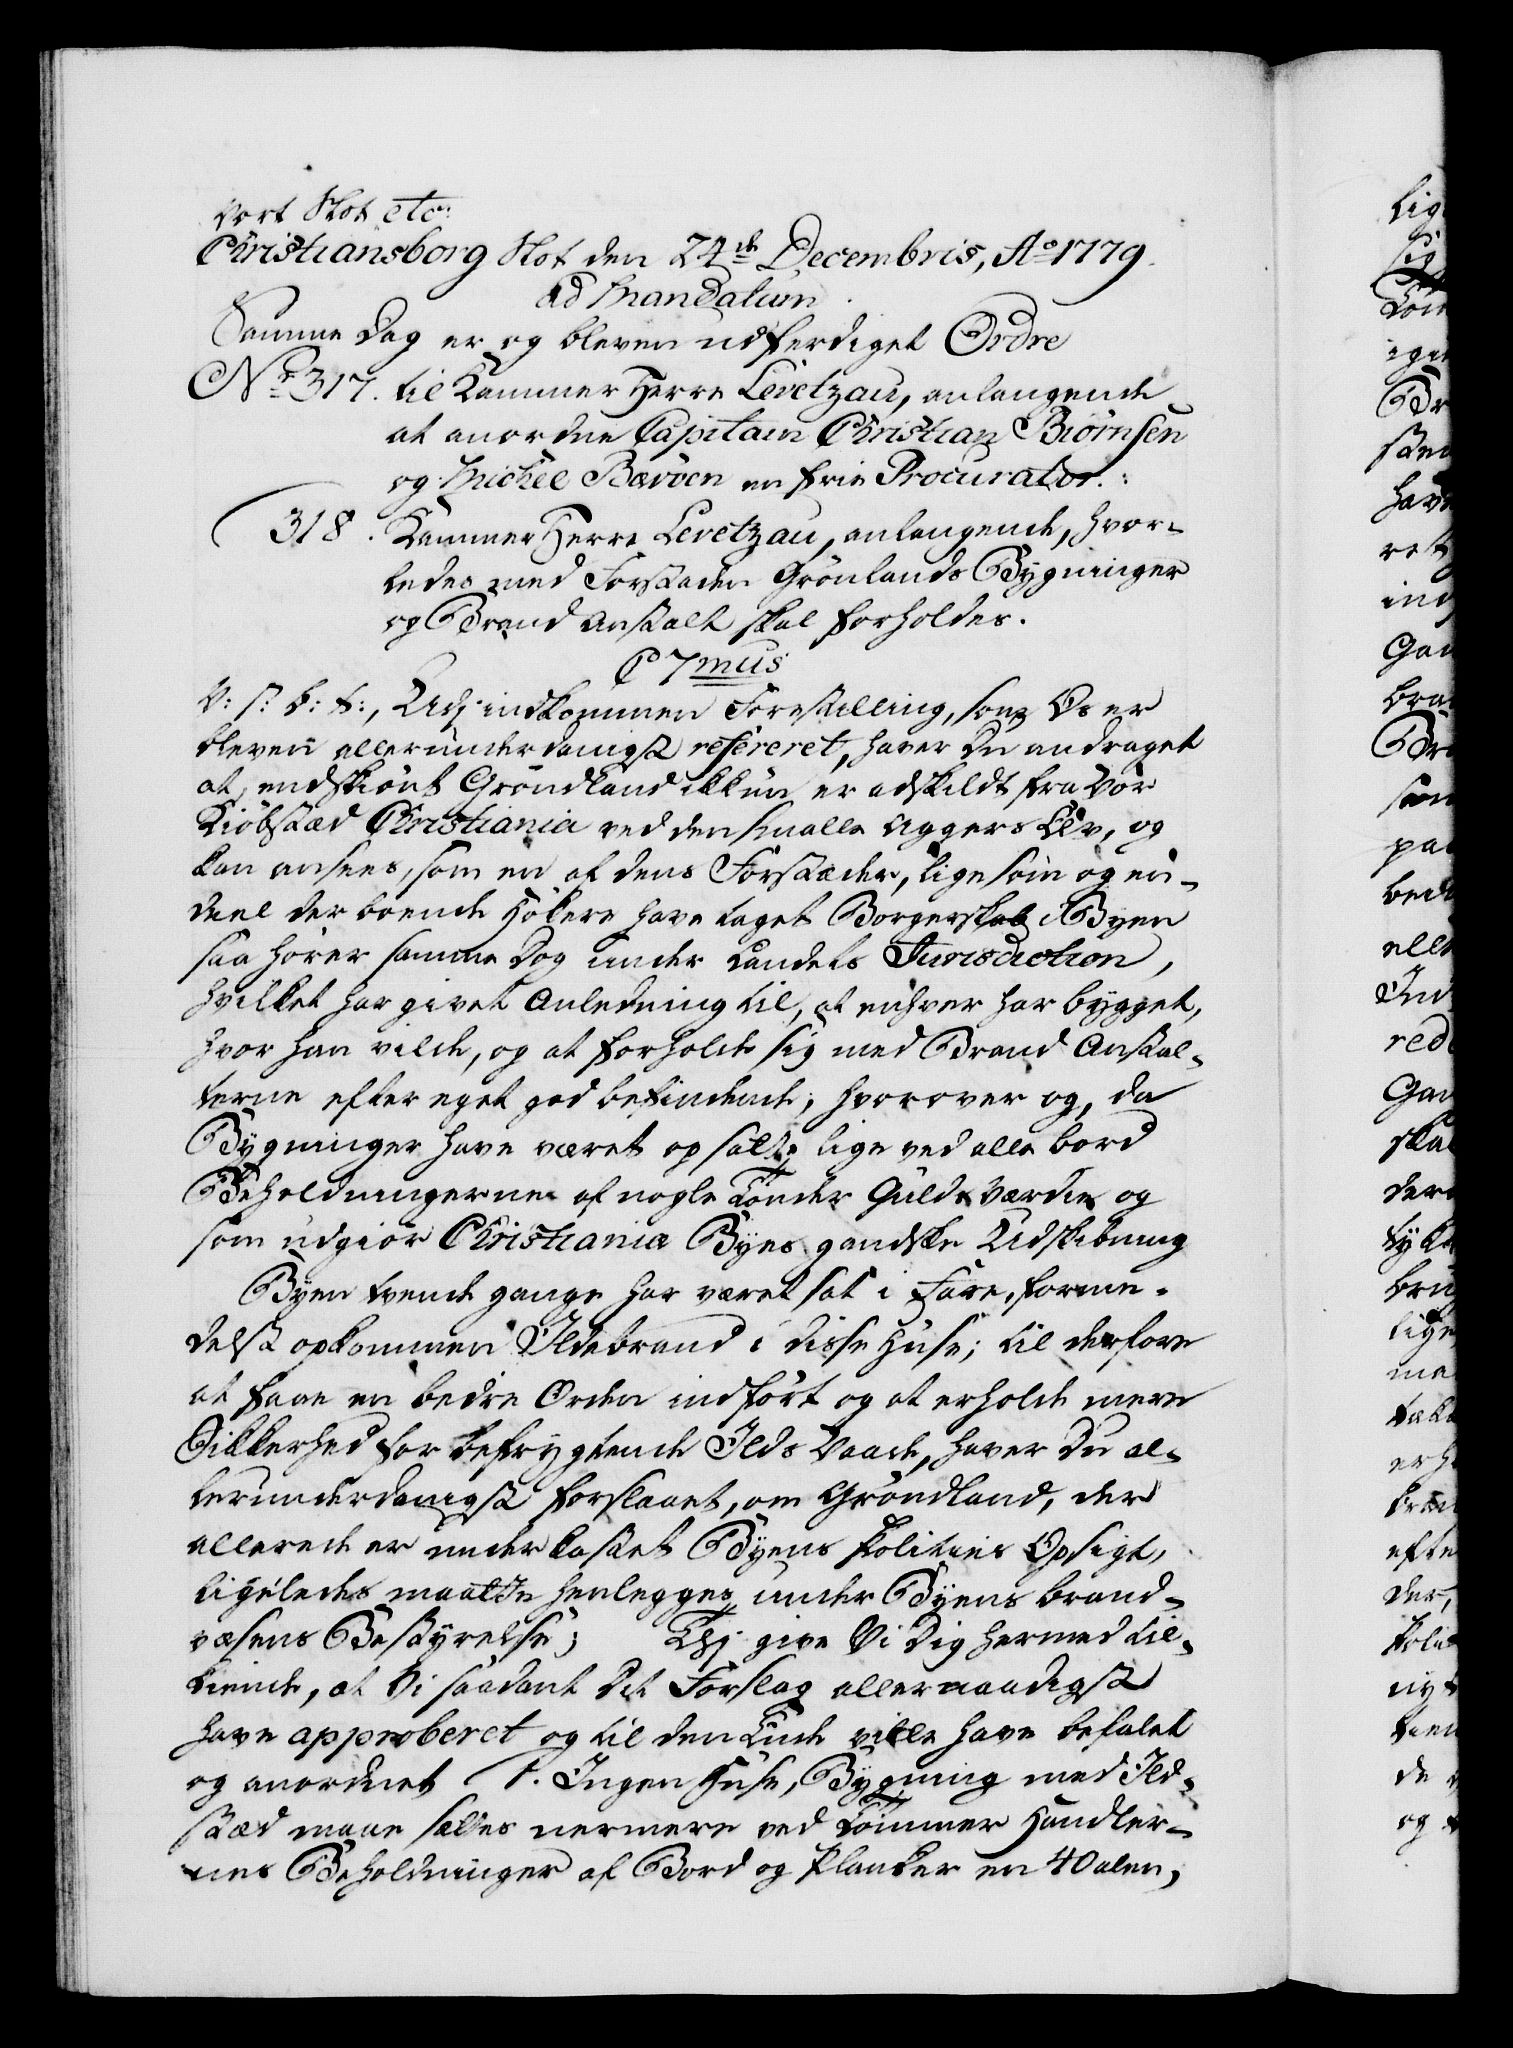 Vort Slot etc:
Christiansborg Slot den 24de Decembris, Ao 1779.
ad Mandatum.
Samme Dag er og bleven udferdiget Ordre
No 317. til Kammer Herre Levetzau, anlangende
at anordne Capitain Christian Biørnsen
og Michel Barøen en frie Procurator.:
318. Kammer Herre Levetzau, anlangende, hvor-
ledes med Forstaden Grønlands Bygninger
og Brand Anstalt skal forholdes.
C 7mus
V: s: b: t:, Udj indkommen Forestilling, som Os er
bleven allerunderdanigst refereret, haver Du andraget
at, endskiønt Grøndland ikkun er adskildt fra Vor
Kiøbstæd Christiania ved den smalle Aggers Elv, og
kan ansees, som en af dens Forstæder, ligesom og en-
deel der boende Høkere have taget Borgerskab i Byen
saa hører samme dog under Landets Jurisdiction,
hvilket har givet Anledning til, at enhver har bygget,
hvor han vilde, og at forholde sig med Brand Anstal-
terne efter eget godbefindende; hvorover og, da
Bygninger have været opsatte lige ved alle bord
Beholdningerne af nogle Tønder Guld Værdie og
som udgiør Christiania Byes gandske Udskibning
Byen tvende gange har været sat i Fare, forme-
delst opkommen Ildebrand i disse Huse; til derfore
at faae en bedre Orden indført og at erholde mere
Sikkerhed for befrygtende Ilds Vaade, haver Du al-
lerunderdanigst forslaaet, om Grøndland, der
allerede er underkastet Byens Polities Opsigt,
ligeledes maatte henlegges under Byens brand-
væsens Bestyrelse; Thj give Vi Dig hermed til-
kiende, at Vi saadant dit Forslag allernaadigst
have approberet og til den Ende ville have befalet
og anordnet 1. Ingen Huse, Bygning med Ild-
stæd maae sættes nermere ved Tømmer Handler-
nes Beholdninger af Bord og Planker en 40 alen,